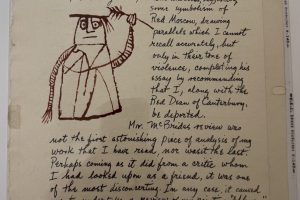 some symbolism of
Red Moscow, drawing
parallels which I cannot
recall accurately, but
only in their tone of
violence, completing his
essay by recommending
that I, along with the
Red Dean of Canterbury,
be deported.
Mr. McBrides review was
not the first astonishing piece of analysis of my
work that I have read, nor was it the last.
Perhaps coming as it did from a critic whom
I had looked upon as a friend, it was one
of the most disconcerting. In any case, it caused